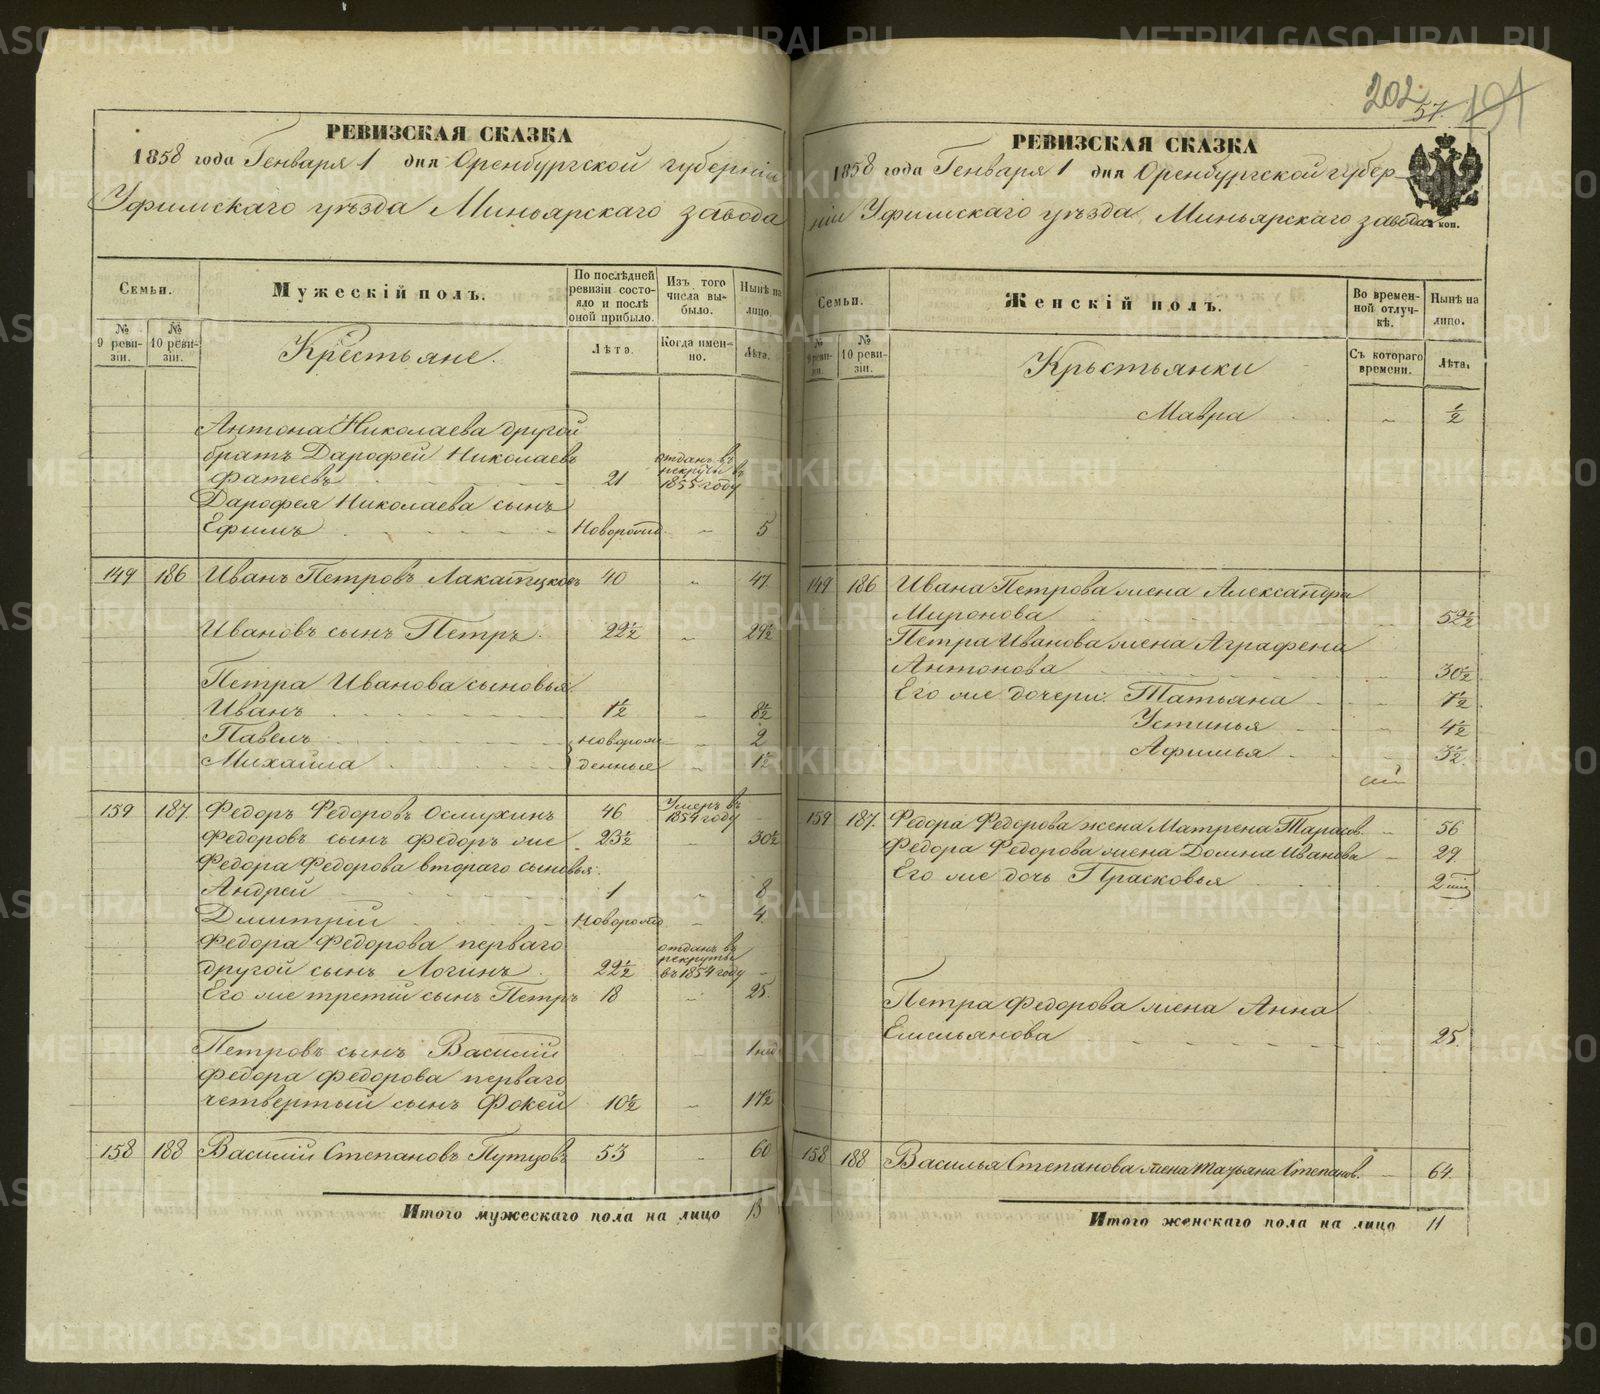 РЕВИЗСКАЯ СКАЗКА
1858 года Генваря 1 дня Оренбургской губернiи
Уфимскаго уѣзда Миньярскаго завода
Семьи.
Мужескiй полъ.
По послѣдней ревизiи состояло и послѣ оной прибыло.
Изъ того числа выбыло.
Нынѣ на лицо.
№ 9 ревизiи.
№ 10 ревизiи.
Крестьяне.
Лѣта.
Когда именно.
Лѣта.
Антона Николаева другой
братъ Дарофей Николаевъ
Фатеевъ 21 отданъ въ рекруты въ 1855 году
Дарофея Николаева сынъ
Ефимъ Новорожд. 5
149 186 Иванъ Петровъ 40 47
Ивановъ сынъ Петръ. 22½ 29½
Петра Иванова сыновья
Иванъ 1½ 8½
Павелъ новорож 2
Михаила денные 1½
159 187 Федоръ Федоровъ Осмухинъ 46 Умеръ въ 1854 году
Федоровъ сынъ Федоръ же 23½ 30½
Федора Федорова втораго сыновья.
Андрей 1 8
Дмитрiй Новорожд 4.
Федора Федорова перваго
другой сынъ Логинъ. 22½ отданъ въ рекруты въ 1854 году
Его же третiй сынъ Петръ 18 25.
Петровъ сынъ Василiй 1 нед
Федора Федорова перваго
четвертый сынъ Фокей 10½ 17½
158 188 Василiй Степановъ Путцовъ 53 60
Итого мужескаго пола на лицо 13
202 57. 191
РЕВИЗСКАЯ СКАЗКА
1858 года Генваря 1 дня Оренбургской губер
нiи Уфимскаго уѣзда, Миньярскаго завода
коп.
Семьи.
Женскiй полъ.
Во временной отлучкѣ.
Нынѣ на лицо.
№ 9 ревизiи.
№ 10 ревизiи.
Крьстьянки
Съ котораго времени.
Лѣта.
Мавра ½
149 186 Ивана Петрова жена Александра
Миронова 52½
Петра Иванова жена Аграфена
Антонова 30½
Его же дочери: Татьяна 7½
Устинья 4½
Афимья 3½
159 187. Федора Федорова жена Матрена Тарасов. 56
Федора Федорова жена Домна Иванова 29
Его же дочь Прасковья 2
Петра Федорова жена Анна
Емельянова 25.
158 188 Василья Степанова жена Татьяна Степанов. 64.
Итого женскаго пола на лицо 11
METRIKI.GASO-URAL.RU